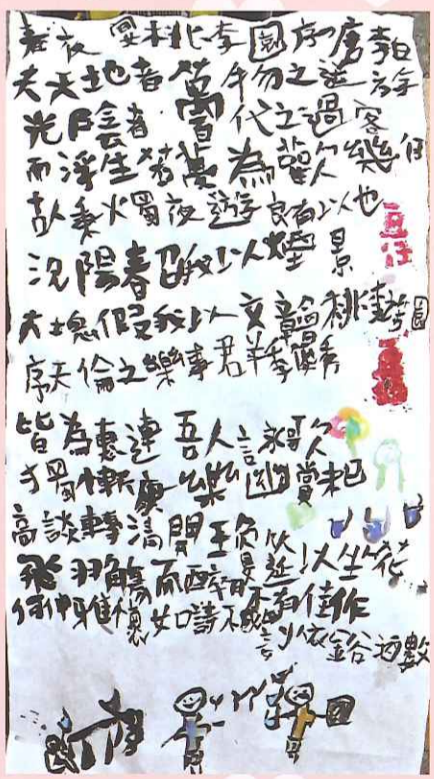 春夜宴桃李園序唐李白
夫天地者萬物之逆旅
光陰者百代之過客
而浮生若夢為歡幾何
古人秉燭夜遊良有以也
況陽春召我以煙景
大塊假我以文章會桃李芳園
序天倫之樂事群季俊秀
皆為惠連吾人詠歌
獨慚康樂幽賞未已
高談轉清開瓊筵以坐花
飛羽觴而醉月不有佳作
何伸雅懷如詩不成
依金谷酒數